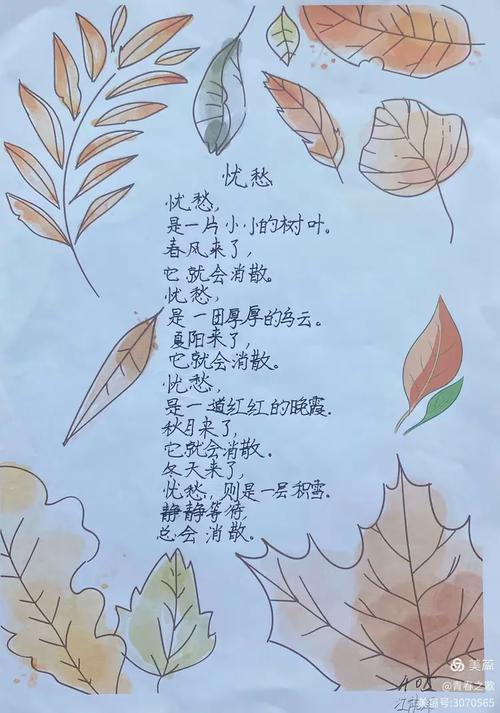 忧愁
忧愁,
是一片小小的树叶。
春风来了,
它就会消散。
忧愁,
是一团厚厚的乌云。
夏阳来了,
它就会消散。
忧愁,
是一道红红的晚霞.
秋月来了,
它就会消散。
冬天来了,
忧愁,则是一层积雪.
静静等待,
总会消散。
美篇
@青春之歌
美篇号:3070565